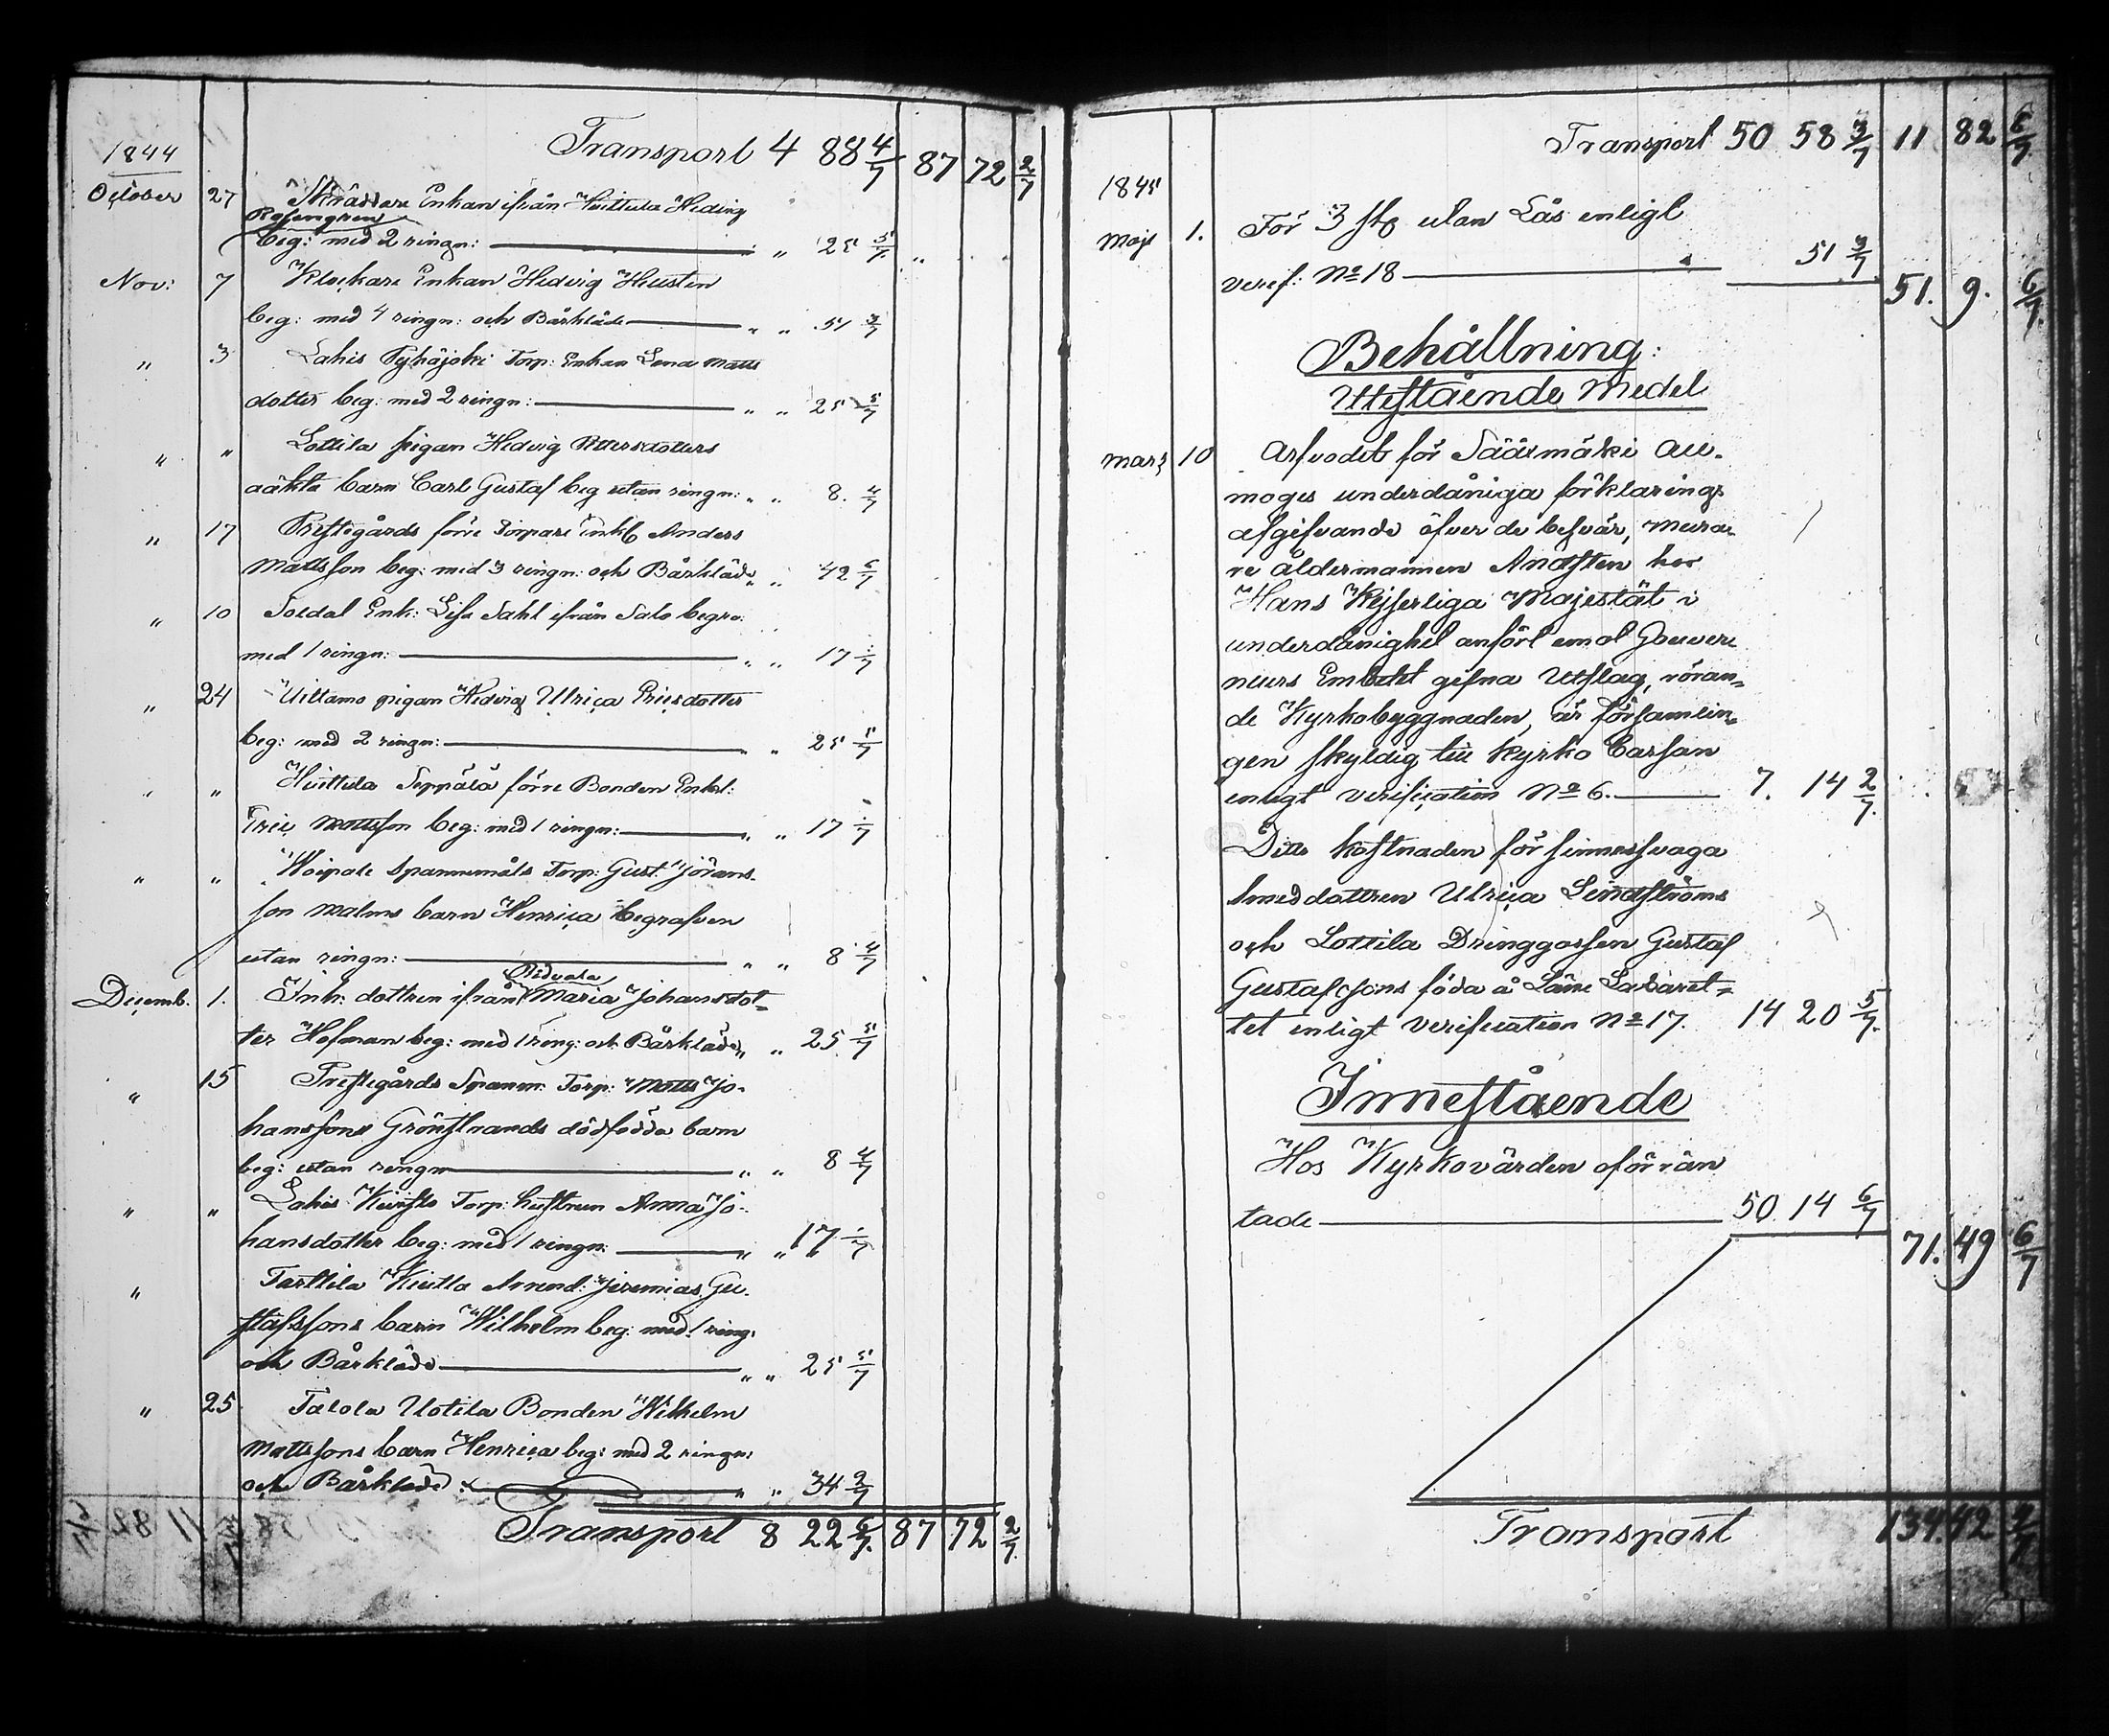 Transport 4 88 4/7 87 72 2/7
1844
October 27 Skräddare Enkan ifrån Huittula Hedvig
Rosengren
beg: med 2 ringn: — " 25 5/7 "
Nov: 7 Klockare Enkan Hedvig Husten
beg: med 4 ringn: och Bårkläde — " " 51 3/7
" 3 Lahis Pyhäjoki Torp: Enkan Lena Matts
dotter beg: med 2 ringn: — " " 25 5/7
" " Lottila pigan Hedvig Pettersdotters
oäkta barn Carl Gustaf beg utan ringn: " " 8. 4/7
" 17 Prestegårds förre Torpare Enkl Anders
Mattsson beg: med 3 ringn: och Bårkläde " " 42 6/7
" 10 Soldat Enk: Lisa Dahl ifrån Salo begr:
med 1 ringn: — " " 17 1/7
" 24 Uittamo pigan Hedvig Ulrica Ericsdotter
beg: med 2 ringn: — " " 25 5/7
" " Huittula Seppälä förre Bonden Enkl:
Eric Mattsson beg: med 1 ringn: — " " 17 1/7
" " Woipala Spannemåls Torp: Gust. Jörans-
son Malms barn Henrica begrafven
utan ringn: — " " 8 4/7
Decemb. 1. Inh: dottren ifrån Ridvala Maria Johansdot-
ter Hofman beg: med 1 ring: och Bårkläde " " 25 5/7
" 15 Prestegårds Spanm: Torp: Matts Jo-
hanssons Grönstrands dödfödda barn
beg: utan ringn — " " 8 4/7
" " Lahis Torp: hustrun Anna Jo-
hansdotter beg: med 1 ringn: — " " 17 1/7
" Tarttila Jeremias Gu-
stafssons barn Wilhelm beg: med 1 ring:
och Bårkläde — " " 25 5/7
" 25 Talola Uotila Bonden Wilhelm
Mattssons barn Henrica beg: med 2 ringn:
och Bårkläde: — " " 34 2/7
Transport 8 22 6/7. 87 72 2/7.
Transport 50 58 3/7 11 82 6/7.
1845
Maji 1. För 3 st utan Lås enligt
veref: No 18 — 51 3/7 51. 9. 6/7.
Behållning:
Utestående Medel
Mars 10 Arfvodet för Sääksmäki All-
moges underdåniga förklarings
afgifvande öfver de besvär, murar
re åldermannen Andsten hos
Hans Kejserliga Majestät i
underdånighet anfört emot Gouver
neurs Embetet gifna Utslag, röran=
de Kyrkobyggnaden, är församlin=
gen skyldig till kyrko Cassan
enligt verification No 6. — 7. 14 2/7.
Ditto kostnaden för sinnessvaga
Smeddottren Ulrica Lindströms
och Lottila Dränggossen Gustaf
Gustafssons föda å Läne Lazaret=
tet enligt Verification No 17. 14 20 5/7.
Innestående
Hos Kyrkovärden oförrän
tade — 50. 14 6/7 71. 49 6/7
Transport 134. 42 2/7